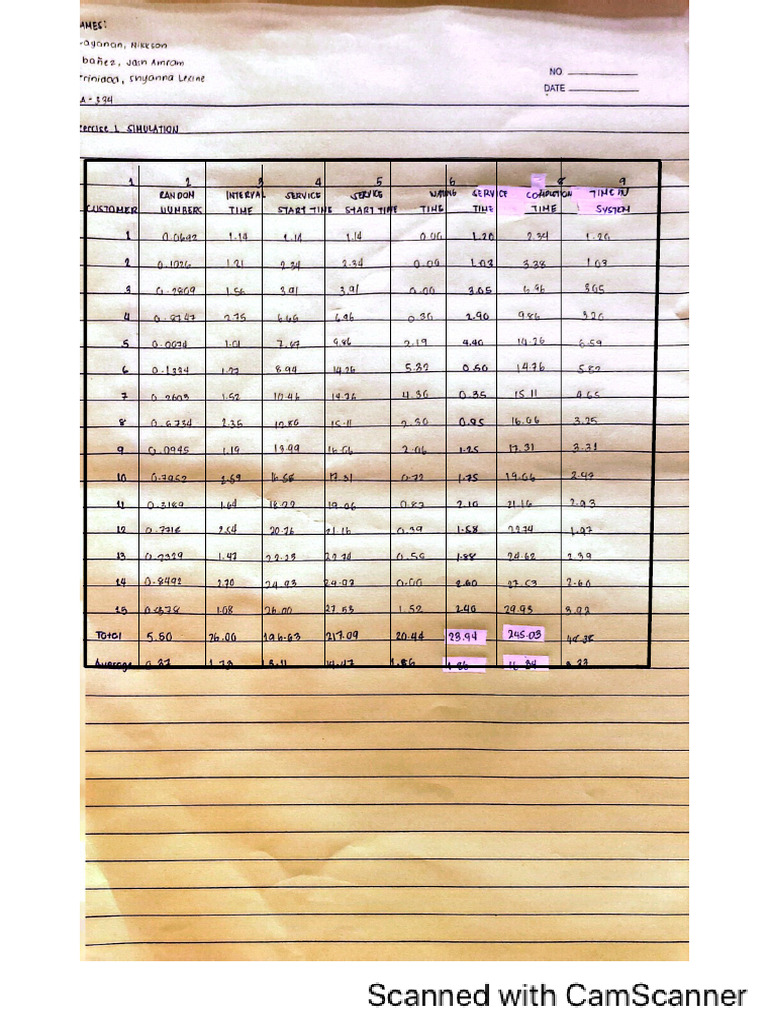 AMES:
ayanan, Nickson
bañez, Jain Amram
trinidad, Shyanna Lecine
A-394
ercise 1. SIMULATION
NO.
DATE
1 2 3 4 5 6 8 9
RANDOM INTERVAL SERVICE SERVICE WAITING SERVICE COMPLETION TIME IN
CUSTOMER NUMBERS TIME START TIME START TIME TIME TIME TIME SYSTEM
1 0.0692 1.14 1.14 1.14 0.00 1.20 2.34 1.20
2 0.1026 1.21 2.34 2.34 0.00 1.03 3.38 1.03
3 0.2809 1.56 3.91 3.91 0.00 3.05 6.96 3.05
4 0.8747 2.75 6.66 6.96 0.30 2.90 9.86 3.20
5 0.0074 1.01 7.67 9.86 2.19 4.40 14.26 6.59
6 0.1334 1.27 8.94 14.26 5.32 0.50 14.76 5.82
7 0.2603 1.52 10.46 14.76 4.30 0.35 15.11 4.65
8 0.6734 2.35 12.80 15.11 2.30 0.95 16.06 3.25
9 0.0945 1.19 13.99 16.06 2.06 1.25 17.31 3.31
10 0.7952 2.59 16.58 17.31 0.72 1.75 19.06 2.47
11 0.3189 1.64 18.22 19.06 0.83 2.10 21.16 2.93
12 0.7716 2.54 20.76 21.16 0.39 1.58 22.74 1.97
13 0.2329 1.47 22.23 22.74 1.88 24.62 2.39
14 0.8492 2.70 24.93 24.93 0.00 2.60 27.53 2.60
15 1.08 26.00 27.53 1.52 2.40 29.93 3.92
Total 5.50 26.00 196.63 217.09 20.44 23.94 245.03
Average 0.37 1.73 13.11 14.47 1.36 16.34
Scanned with CamScanner